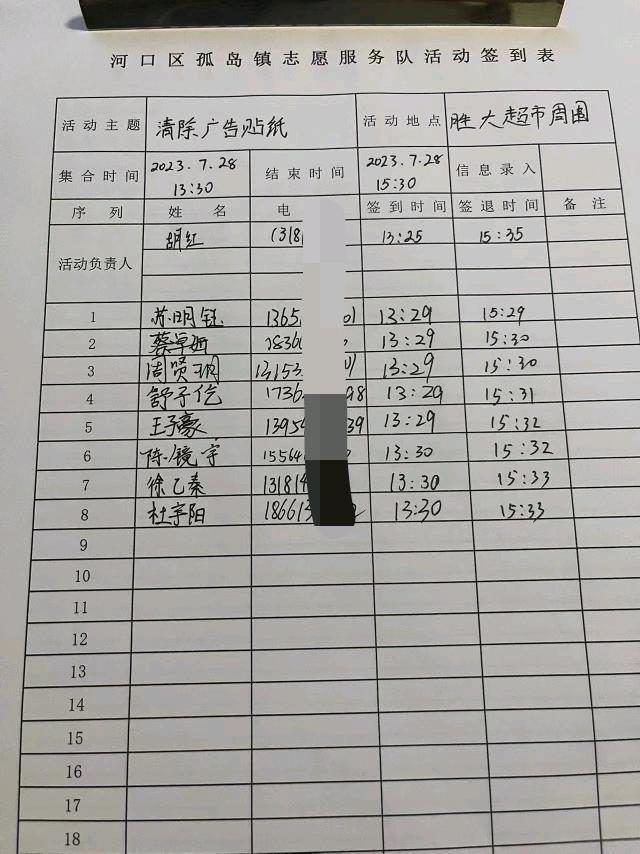 河口区孤岛镇志愿服务队活动签到表
活动主题 清除广告贴纸 活动地点 胜大超市周围
集合时间 2023.7.28 13:30 结束时间 2023.7.28 15:30 信息录入
序列 姓名 电 签到时间 签退时间 备注
活动负责人 胡红 1318 13:25 15:35
1 苏明钰 1365 13:29 15:29
2 蔡卓妍 1836 13:29 15:30
3 周贤明 13153 13:29 15:30
4 舒子仡 1736 98 13:29 15:31
5 王子豪 1395 39 13:29 15:32
6 陈镜宇 15564 13:30 15:32
7 徐乙秦 131814 13:30 15:33
8 杜宇阳 186613 13:30 15:33
9
10
11
12
13
14
15
16
17
18